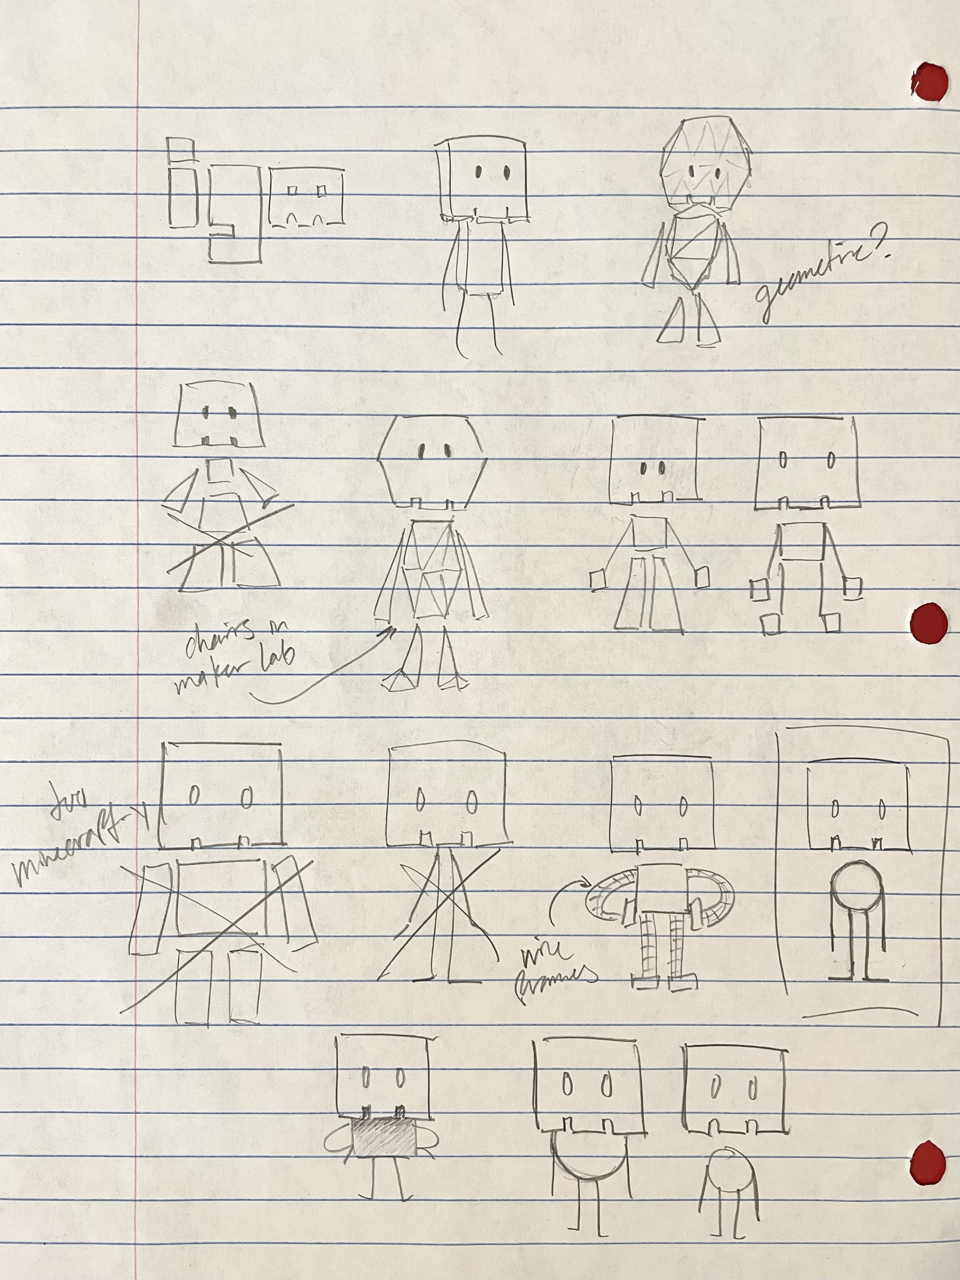 geometric?
chairs in
maker lab
too
minecraft-y
wire
frames